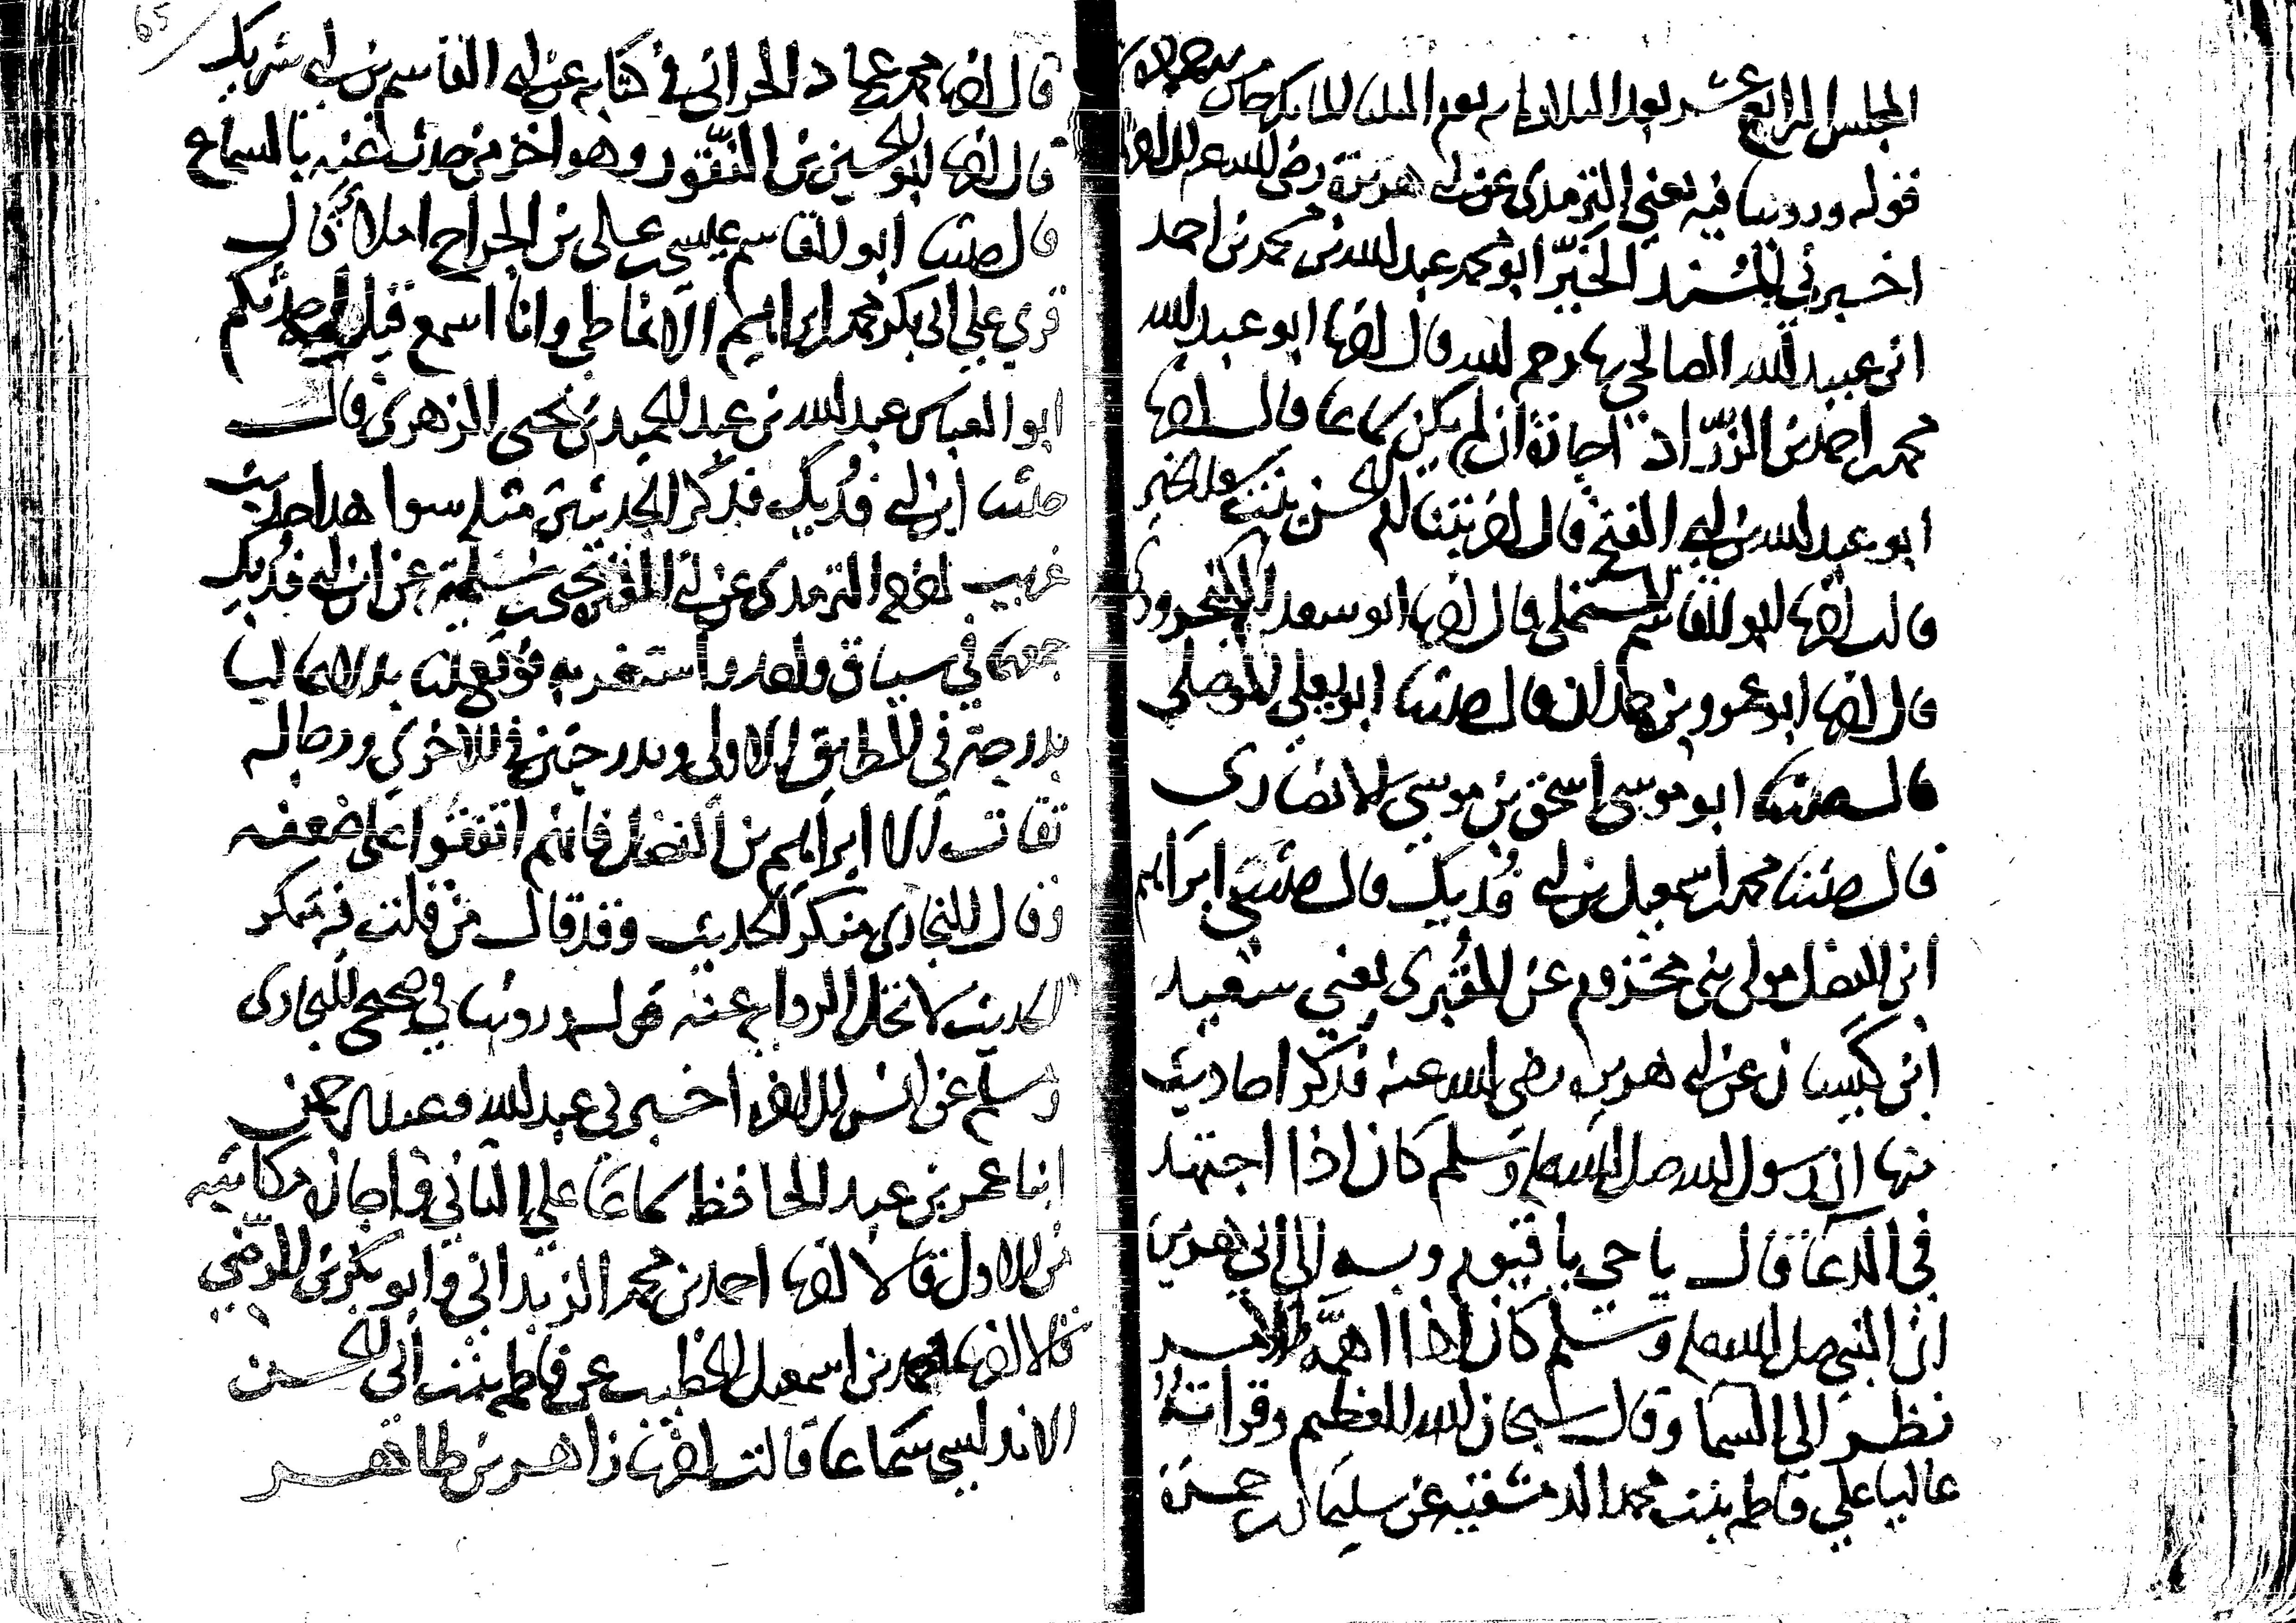 المجلس الرابع عشر بعد الثلاثمائة يوم الثلاثا
قوله وروينا فيه يعني الترمذي عن ابي هريرة رضي الله عنه
اخبرني المسند الخير ابو محمد عبد الله بن محمد بن احمد
ابن عبيد الله الصالحي بها رحمه الله قال اخبرنا ابو عبد الله
محمد احمد بن الزراد اجازة ان لم يكن سماعا قال اخبرنا
ابو عبد الله بن ابي الفتح قال اخبرتنا ام الحسن بنت سعد الخير
قالت اخبرنا ابو القاسم المستملي قال اخبرنا ابو سعد الكنجرودي
قال اخبرنا ابو عمرو بن حمدان قال حدثنا ابو يعلى الموصلي
قال حدثنا ابو موسى اسحق بن موسى الانصاري
قال حدثنا محمد اسمعيل بن ابي فديك قال حدثني ابراهيم
ابن الفضل مولى بني مخزوم عن المقبري يعني سعيد
ابن كيسان عن ابي هريرة رضي الله عنه فذكر احاديث
منها ان رسول الله صلى الله عليه وسلم كان اذا اجتهد
في الدعا قال يا حي يا قيوم وبه الى ابي هريرة
ان النبي صلى الله عليه وسلم كان اذا اهمه الامر
نظر الى السما وقال سبحان الله العظيم وقراته
عاليا على فاطمة بنت محمد الدمشقية عن سليمان بن حمزة
قال اخبرنا محمد عماد الحراني في كتابه عن ابي القاسم بن ابي شريك
قال اخبرنا ابو الحسين بن النقور وهو اخر من حدث عنه بالسماع
قال حدثنا ابو القاسم عيسى بن علي بن الجراح املاء قال
قري على ابي بكر محمد ابراهيم الانماطي وانا اسمع قيل له حدثكم
ابو العباس عبد الله بن عبد الحميد بن يحيى الزهري قال
حدثنا ابن ابي فديك فذكر الحديثين مثله سوا هذا حديث
غريب اخرجه الترمذي عن ابي المغيرة يحيى بن سلمة عن ابن ابي فديك
جمعهما في سياق واحد واستغربه فوقع لنا بدلا عاليا
بدرجة في الطريق الاولى وبدرجتين في الاخرى ورجاله
ثقات الا ابراهيم بن الفضل فانهم اتفقوا على ضعفه
وقال البخاري منكر الحديث وقد قال من قلت فيه منكر
الحديث لا تحل الرواية عنه قوله وروينا في صحيح البخاري
ومسلم عن انس اخبرني عبد الله وعبد الرحمن
ابنا عمر بن عبد الحافظ سماعا على الثاني واجازة مكاتبة
من الاول قالا اخبرنا احمد بن محمد الزبداني وابو بكر بن الرضي
قالا اخبرنا محمد بن اسمعيل الخطيب عن فاطمة بنت ابي الحسن
الاندلسي سماعا قالت اخبرنا زاهر بن طاهر
65